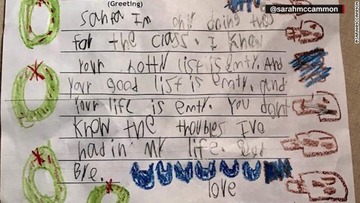 (Greeting)
@sarahmccammon
Santa Im only doing this
for the class. I know
your notty list is emty. And
your good list is emty. and
your life is emty. You dont
know the troubles Ive
had in my life. Good
Bye.
love